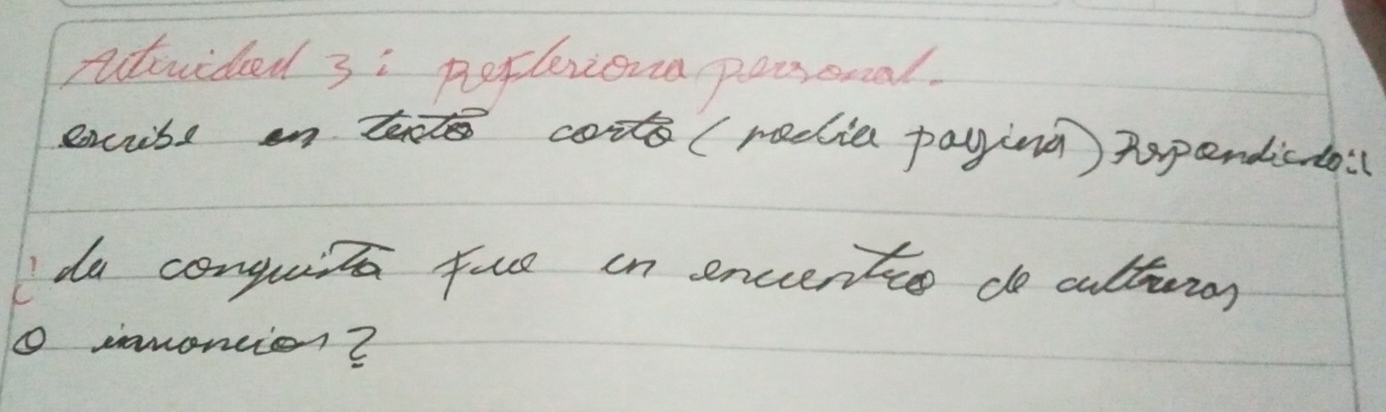 Actividad 3: Reflexiona personal.
escribe un texto corto (media pagina) Respondiendo:
¿ La conquista fue un encuentro de culturas
o invancion?